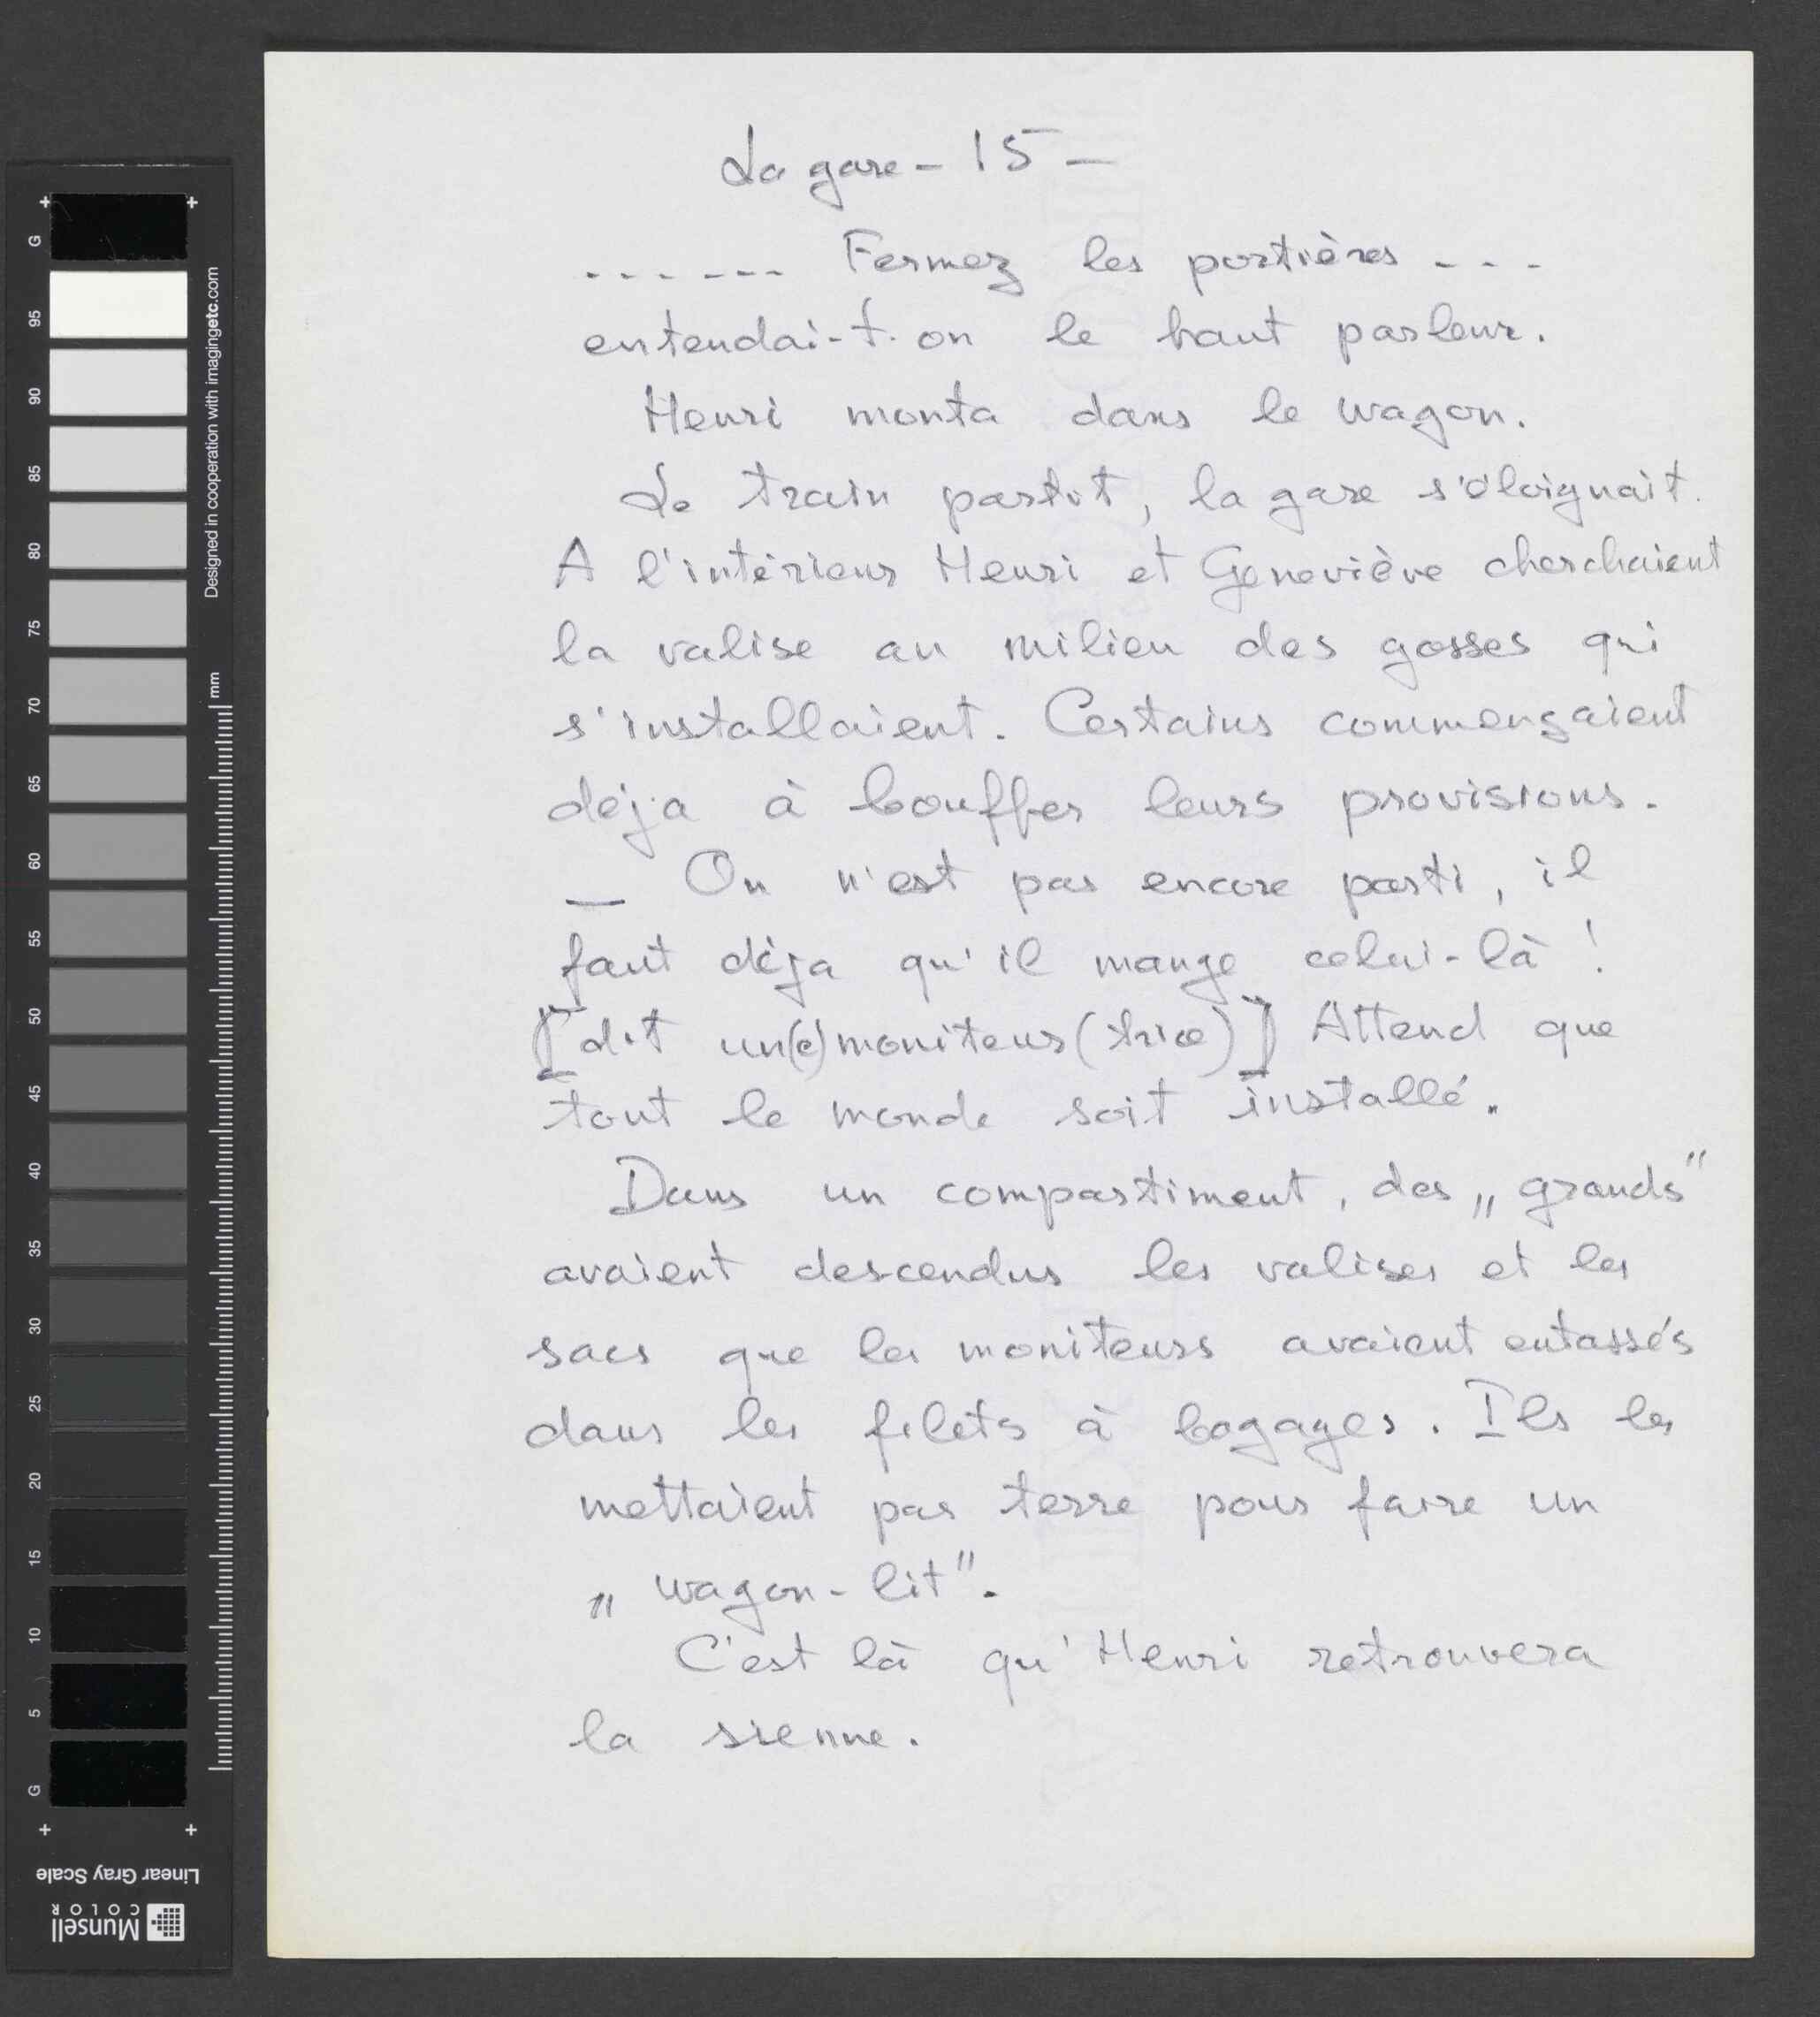 La gare - 15 -
...... Fermez les portières ...
entendai-t-on le haut parleur.
Henri monta dans le wagon.
Le train partit, la gare s'éloignait.
A l'intérieur Henri et Geneviève cherchaient
la valise au milieu des gosses qui
s'installaient. Certains commençaient
déja à bouffer leurs provisions.
— On n'est pas encore parti, il
faut déja qu'il mange celui-là !
[dit un(e) moniteur (trice)] Attend que
tout le monde soit installé.
Dans un compartiment, des „grands"
avaient descendus les valises et les
sacs que les moniteurs avaient entassés
dans les filets à bagages. Ils les
mettaient par terre pour faire un
„wagon-lit".
C'est là qu'Henri retrouvera
la sienne.
G
95
90
85
80
75
70
65
60
55
50
45
40
35
30
25
20
15
10
5
G
Designed in cooperation with imagingetc.com
mm
Linear Gray Scale
Munsell
COLOR